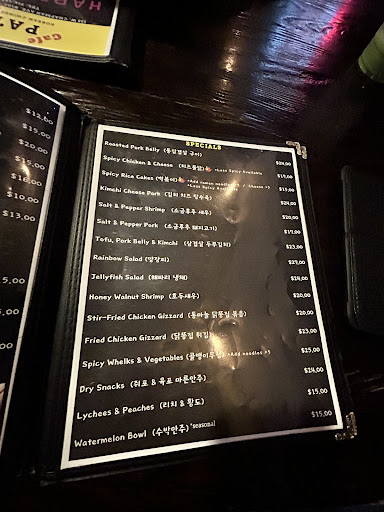 Cafe
PA
$12.00
$15.00
$20.00
$15.00
$16.00
$10.00
$13.00
SPECIALS
Roasted Pork Belly (통삼겹살 구이) $24.00
Spicy Chicken & Cheese (치즈불닭) *Less Spicy Available $19.00
Spicy Rice Cakes (떡볶이) *Add ramen noodles / Cheese *Less Spicy $15.00
Kimchi Cheese Pork (김치 치즈 탕수육) $24.00
Salt & Pepper Shrimp (소금후추 새우) $20.00
Salt & Pepper Pork (소금후추 돼지고기) $19.00
Tofu, Pork Belly & Kimchi (삼겹살 두부김치) $23.00
Rainbow Salad (양장피) $27.00
Jellyfish Salad (해파리 냉채) $24.00
Honey Walnut Shrimp (호두새우) $20.00
Stir-Fried Chicken Gizzard (통마늘 닭똥집 볶음) $20.00
Fried Chicken Gizzard (닭똥집 튀김) $23.00
Spicy Whelks & Vegetables (골뱅이무침) *Add noodles $25.00
Dry Snacks (쥐포 & 육포 마른안주) $24.00
Lychees & Peaches (리치 & 황도) $15.00
Watermelon Bowl (수박안주) *seasonal $15.00